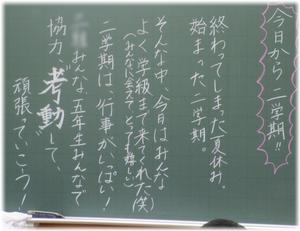 今日から 二学期!!
終わってしまった夏休み。
始まった二学期。
そんな中、今日はみんな
よく学級まで来てくれた(笑)
(みんなに会えてとっても嬉しい)
二学期は、行事がいっぱい!
みんな、五年生みんなで
協力、考動して、
頑張っていこう!